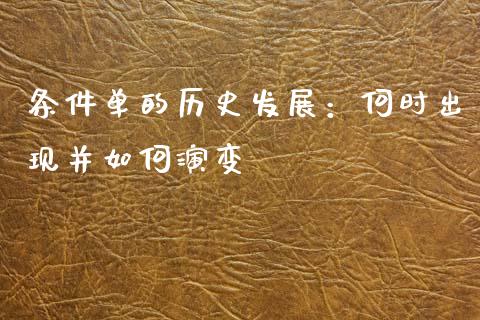 条件单的历史发展：何时出
现并如何演变